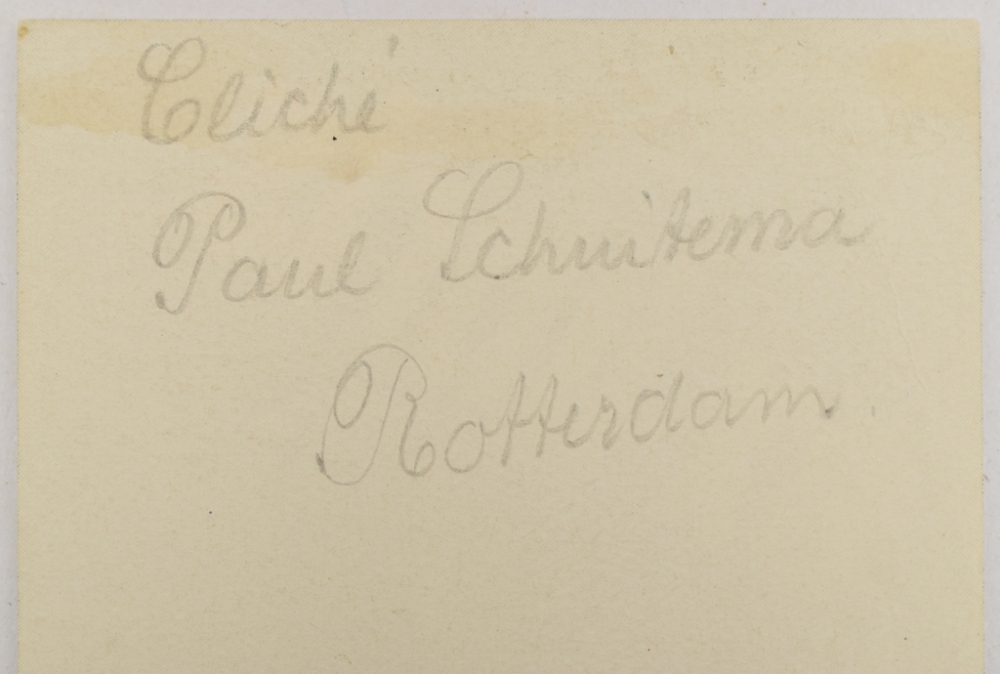 Cliché
Paul Schuitema
Rotterdam.